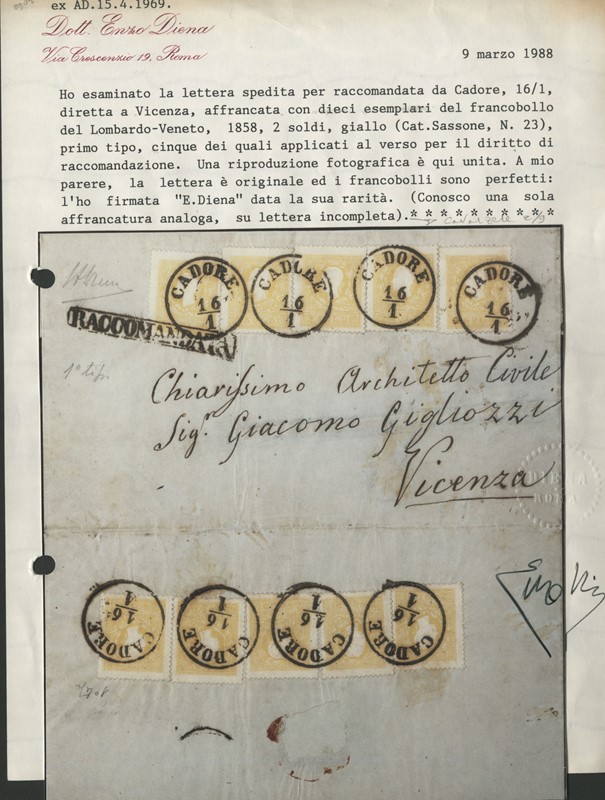 ex AD.15.4.1969.
Dott. Enzo Diena
Via Crescenzio 19, Roma
9 marzo 1988
Ho esaminato la lettera spedita per raccomandata da Cadore, 16/1,
diretta a Vicenza, affrancata con dieci esemplari del francobollo
del Lombardo-Veneto, 1858, 2 soldi, giallo (Cat.Sassone, N. 23),
primo tipo, cinque dei quali applicati al verso per il diritto di
raccomandazione. Una riproduzione fotografica è qui unita. A mio
parere, la lettera è originale ed i francobolli sono perfetti:
l'ho firmata "E.Diena" data la sua rarità. (Conosco una sola
affrancatura analoga, su lettera incompleta).* * * * * * * * * *
CADORE CADORE CADORE CADORE
16/1 16/1 16/1 16/1
RACCOMANDATA
1° tip.
Chiarissimo Architetto Civile
Sigr. Giacomo Gigliozzi
Vicenza
DIENA
ROMA
16/1 16/1 16/1 16/1
CADORE CADORE CADORE CADORE